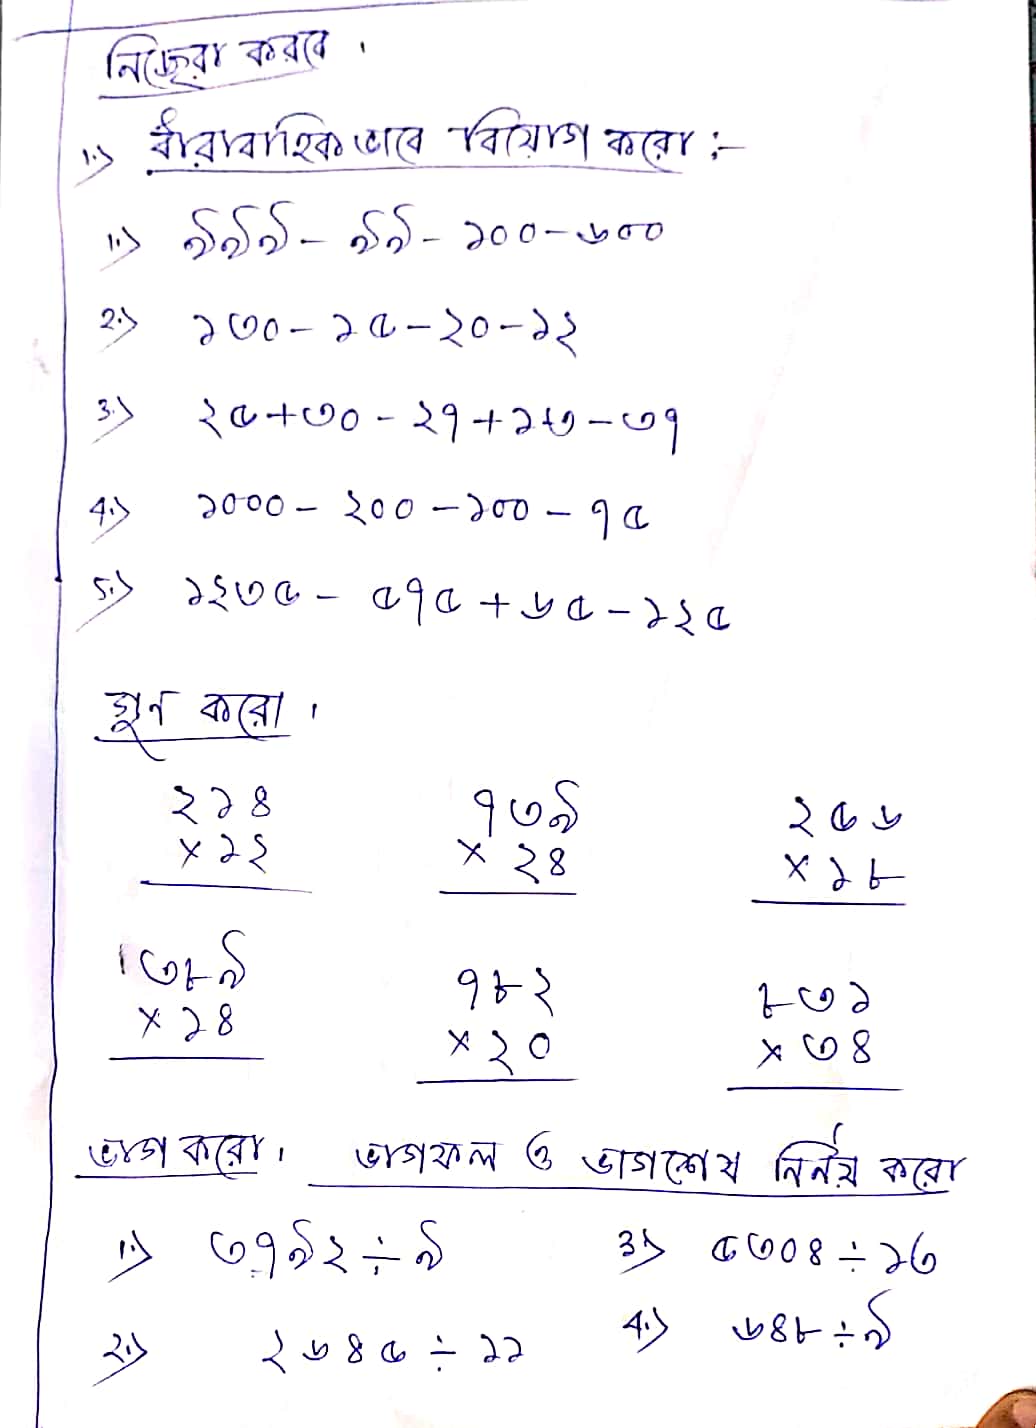 নিজেরা করবে ।
1.) ধারাবাহিক ভাবে বিয়োগ করো :-
1.) ৯৯৯ - ৯৯ - ১০০ - ৬০০
2.) ১৩০ - ১৫ - ২০ - ১২
3.) ২৫ + ৩০ - ২৭ + ১৩ - ৩৭
4.) ১০০০ - ২০০ - ১০০ - ৭৫
5.) ১২৩৫ - ৫৭৫ + ৬৫ - ১২৫
গুন করো ।
২১৪ ৭৩৯ ২৫৬
× ১২ × ২৪ × ১৮
৩৮৯ ৭৮২ ৮৩১
× ১৪ × ২০ × ৩৪
ভাগ করো । ভাগফল ও ভাগশেষ নির্নয় করো
1.) ৩৭৯২ ÷ ৯ 3.) ৫৩০৪ ÷ ১৩
2.) ২৬৪৫ ÷ ১১ 4.) ৬৪৮ ÷ ৯